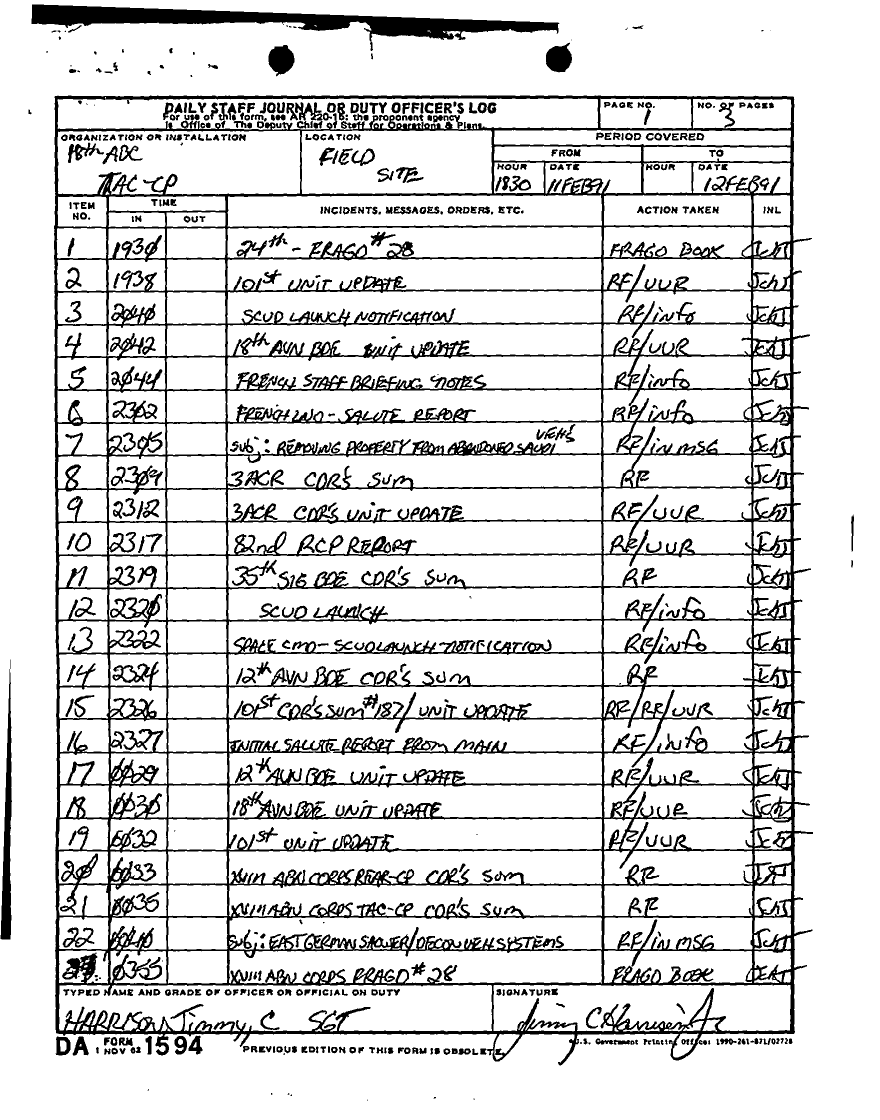 DAILY STAFF JOURNAL OR DUTY OFFICER'S LOG
For use of this form, see AR 220-15; the proponent agency
is Office of The Deputy Chief of Staff for Operations & Plans.
PAGE NO. 1
NO. OF PAGES 3
ORGANIZATION OR INSTALLATION
18th ABC
TAC-CP
LOCATION
FIELD
SITE
PERIOD COVERED
FROM TO
HOUR DATE HOUR DATE
1830 11FEB91 12FEB91
ITEM NO. TIME IN OUT INCIDENTS, MESSAGES, ORDERS, ETC. ACTION TAKEN INL
1 1930 24th - FRAGO # 28 FRAGO BOOK
2 1938 101st UNIT UPDATE RF/UUR
3 2040 SCUD LAUNCH NOTIFICATION RF/info
4 2042 18th AVN BDE UNIT UPDATE RF/UUR
5 2044 FRENCH STAFF BRIEFING NOTES RF/info
6 2302 FRENCH LNO - SALUTE REPORT RF/info
7 2305 Subj: REMOVING PROPERTY FROM ABANDONED SAUDI VEH'S RF/IN MSG
8 2309 3ACR CDR'S SUM RF
9 2312 3ACR CDR'S UNIT UPDATE RF/UUR
10 2317 82nd RCP REPORT RF/UUR
11 2319 35th SIG BDE CDR'S SUM RF
12 2320 SCUD LAUNCH RF/info
13 2322 SPACE CMD - SCUD LAUNCH NOTIFICATION RF/info
14 2324 12th AVN BDE CDR'S SUM RF
15 2326 101st CDR'S SUM #187/ UNIT UPDATE RF/RF/UUR
16 2327 INITIAL SALUTE REPORT FROM MAIN RF/info
17 0029 12th AVN BDE UNIT UPDATE RF/UUR
18 0030 18th AVN BDE UNIT UPDATE RF/UUR
19 0032 101st UNIT UPDATE RF/UUR
20 0033 XVIII ABN CORPS REAR-CP CDR'S SUM RF
21 0035 XVIII ABN CORPS TAC-CP CDR'S SUM RF
22 0040 Subj: EAST GERMAN /DECON VEH SYSTEMS RF/IN MSG
0355 XVIII ABN CORPS FRAGO # 28 FRAGO BOOK
TYPED NAME AND GRADE OF OFFICER OR OFFICIAL ON DUTY
HARRISON, Jimmy, C SGT
SIGNATURE
Jimmy C Harrison Jr
DA FORM 1 NOV 62 1594
PREVIOUS EDITION OF THIS FORM IS OBSOLETE.
U.S. Government Printing Office: 1990-261-871/02728